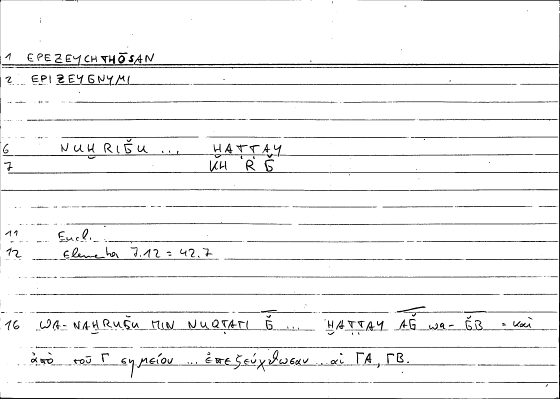 1 EPEZEYCHTHŌSAN
2 EPIZEYGNYMI
6 NUḪRIǦU ... ḪAṬṬAY
7 KH R Ǧ
11 Eucl.
12 Elementa 7.12 = 42.7
16 WA-NAḪRUǦU MIN NUQṬATI Ǧ ... ḪAṬṬAY AǦ wa-ǦB = καὶ
ἀπὸ τοῦ Γ σημείου ... ἐπεζεύχθωσαν ... αἱ ΓΑ, ΓΒ.